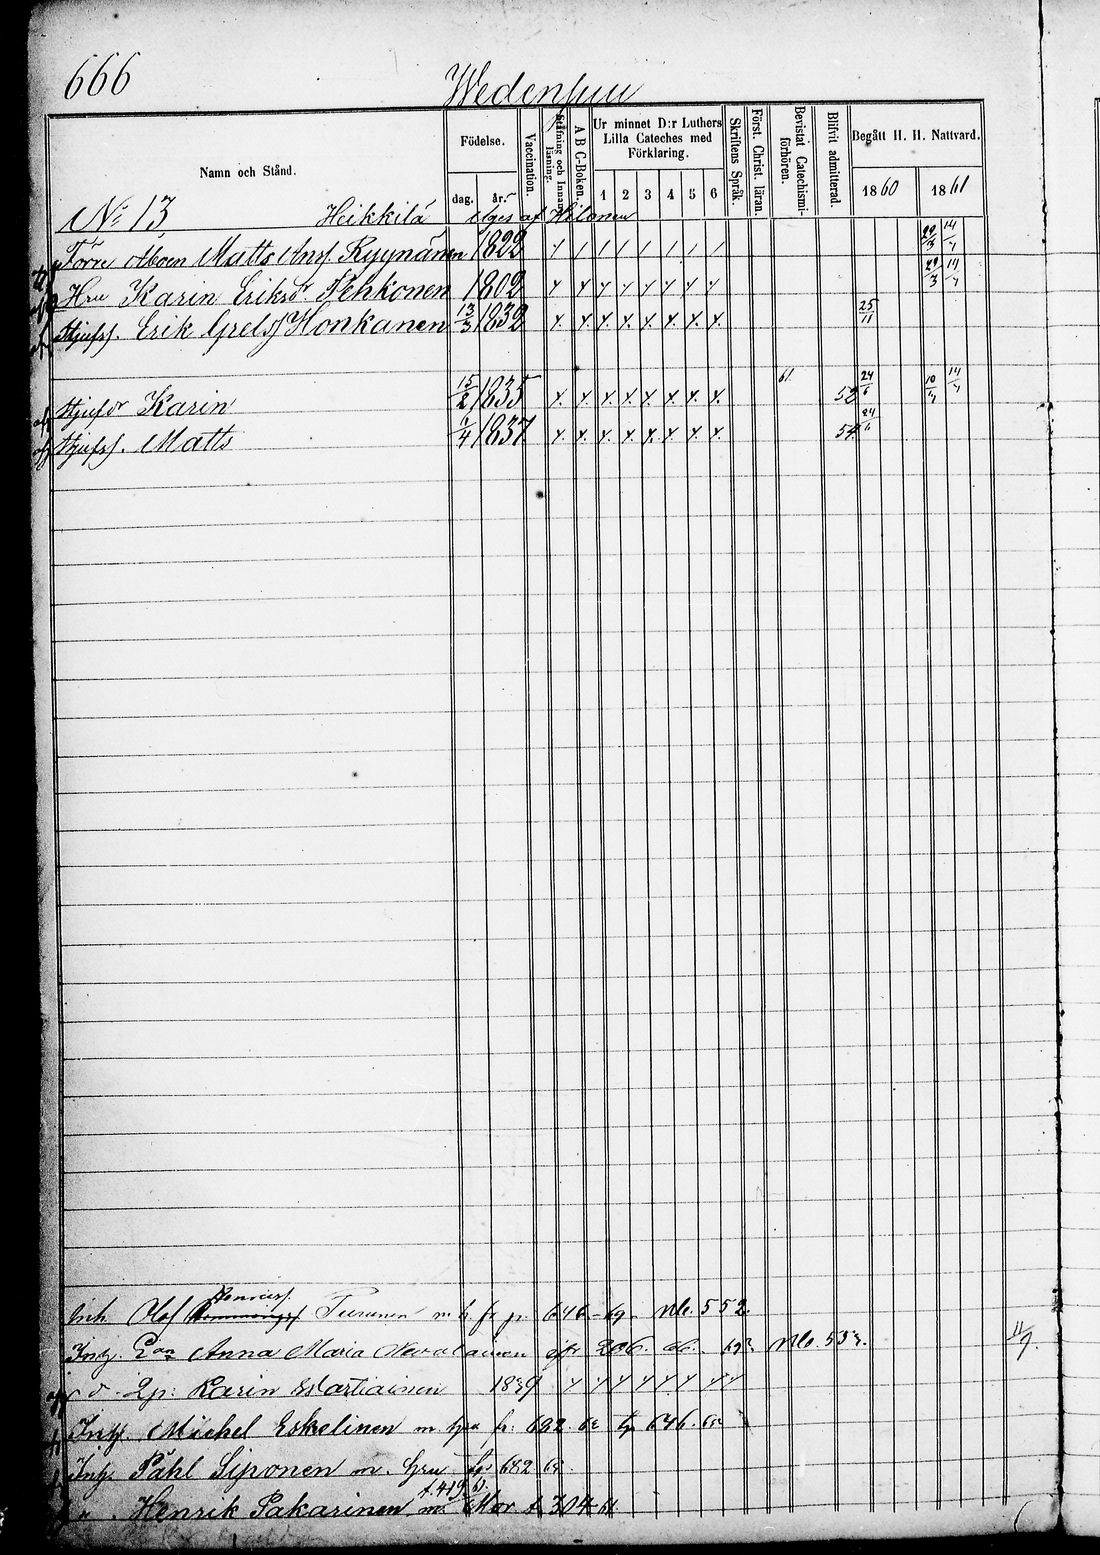 666
Wedensuu
Namn och Stånd.
Födelse.
dag. år.
Vaccination.
Stafning och Innan-läsning.
A B C-Boken.
Ur minnet D:r Luthers
Lilla Cateches med
Förklaring.
1 2 3 4 5 6
Skriftens Språk.
Först. Christ. läran.
Bevistat Catechismi-
förhören.
Blifvit admitterad.
Begått H. H. Nattvard.
1860 1861
No 13 Heikkilä äges af Hilonen
Förre Åboen Matts Ryynänen 1822 29/3 14/4
Hru Karin Eriksdr Pehkonen 1802 29/3 14/4
Styfs. Erik Grels. Honkanen 13/3 1832 25/11
Styfdr Karin 15/2 1835 61 52 24/6 10/4 14/4
Styfs. Matts 6/4 1837 54 24/6
Inh. Olof Henriks. Turunen m. h. fr. p. 646 - 69. No. 552.
Inh. Anna Maria 206. No. 553. 11/9.
Karin Martiainen 1839
Inh. Michel Eskelinen m. hru fr. 692 646.
Inh. Påhl Siponen m. hru 682
Henrik Pakarinen m. Mor f. 304 61